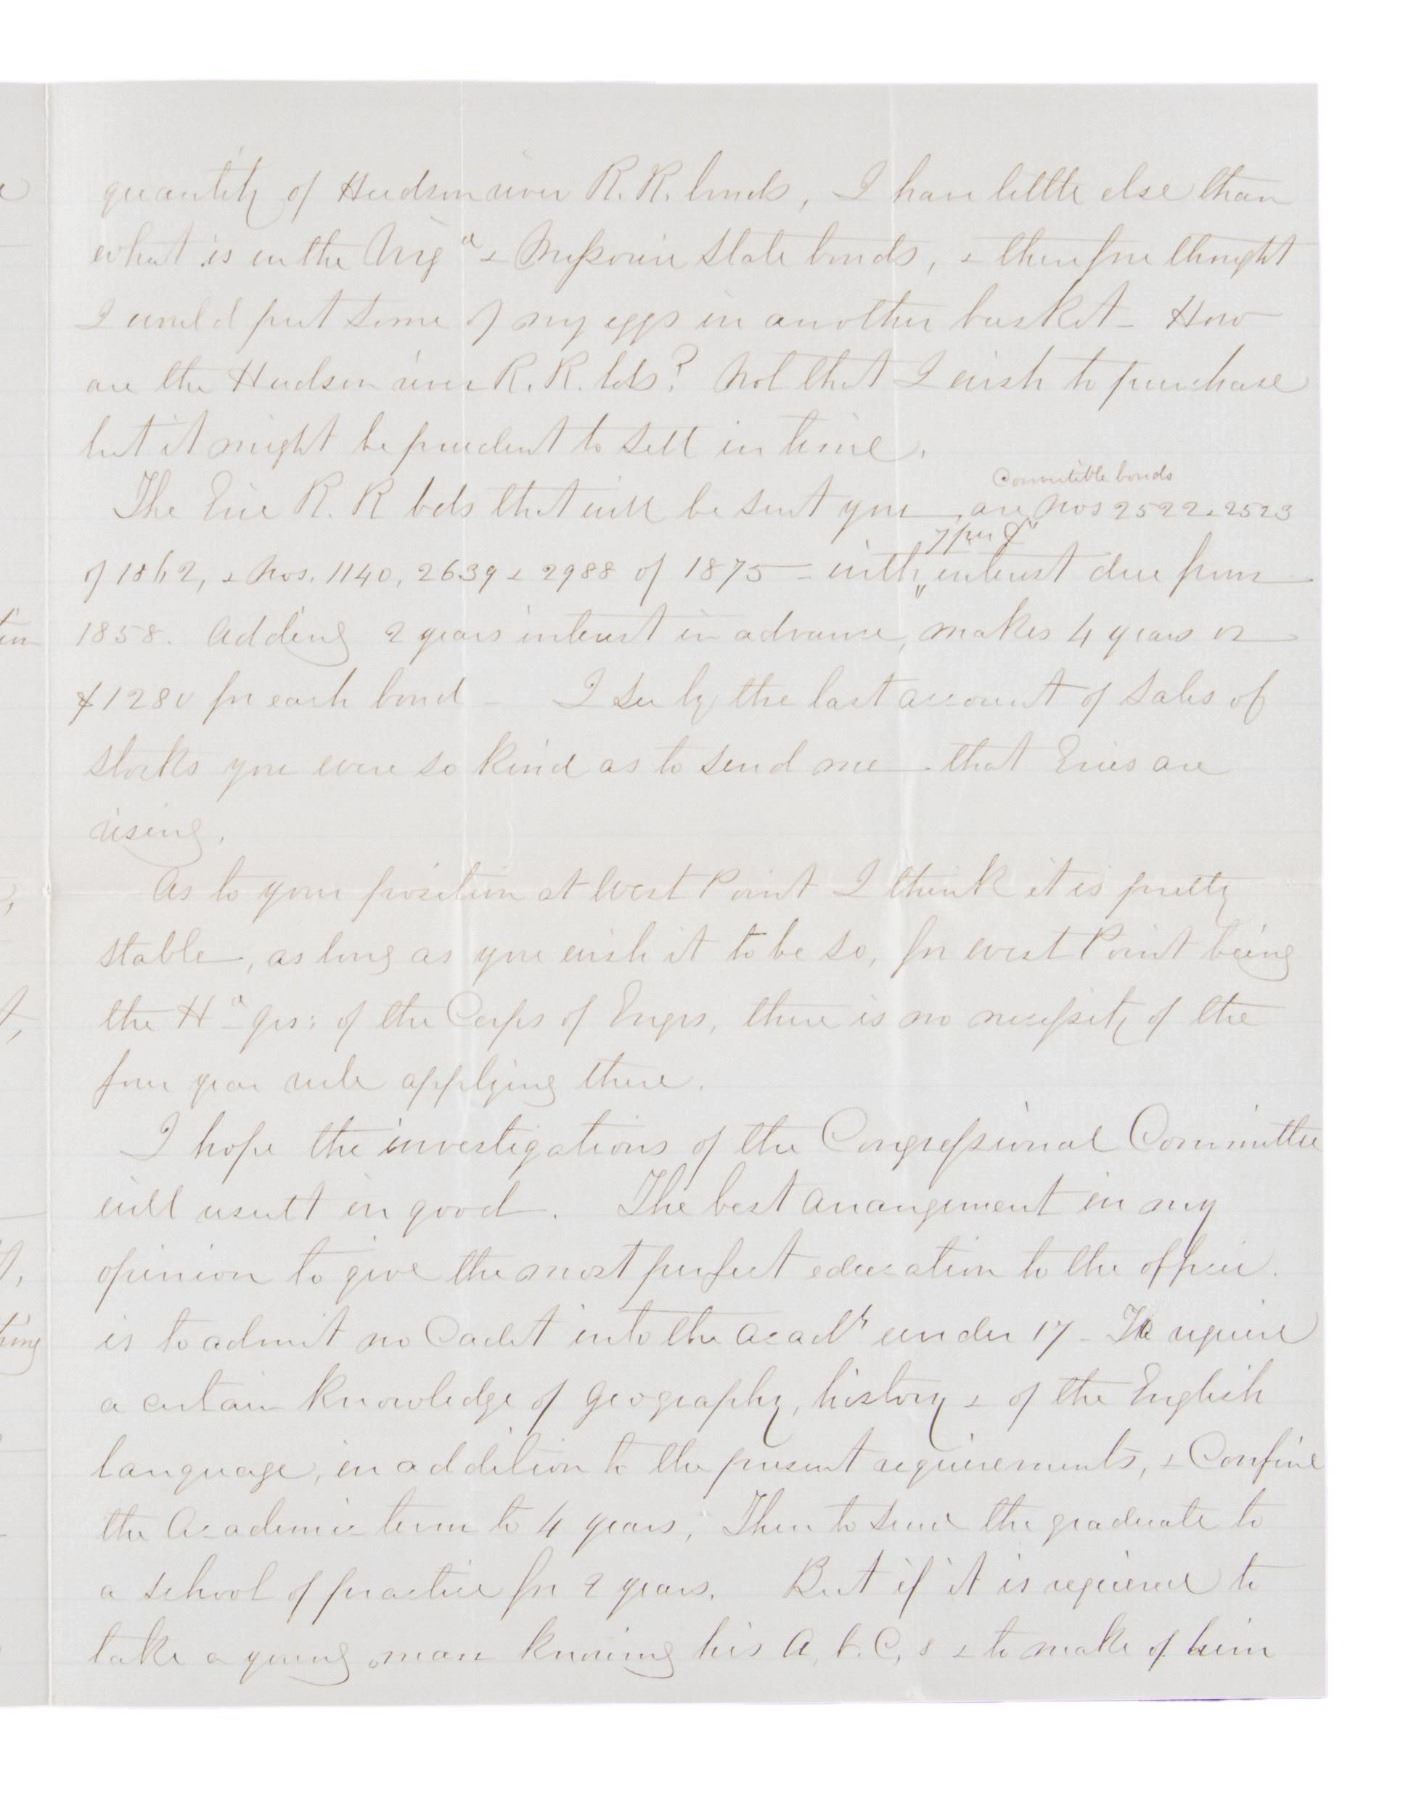 quantity of Hudson river R. R. bonds, I have little else than
what is in the Virgª & Missouri State bonds, & therefore thought
I would put some of my eggs in another basket_ How
are the Hudson river R. R. bds? Not that I wish to purchase
but it might be prudent to sell in time.
Convertible bonds
The Erie R. R bds that will be sent you are Nos 2522 & 2523
7 pr ct
of 1862, & Nos. 1140, 2639 & 2988 of 1875 = with interest due from
1858. Adding 2 years interest in advance, makes 4 years or
$1280 for each bond _ I see by the last account of sales of
stocks you were so kind as to send me that Eries are
rising.
As to your position at West Point I think it is pretty
stable, as long as you wish it to be so, for West Point being
the Hª qrs: of the Corps of Engrs, there is no necessity of the
four year rule applying there.
I hope the investigations of the Congressional Committee
will result in good. The best arrangement in my
opinion to give the most perfect education to the officer.
is to admit no Cadet into the Acady under 17 _ To require
a certain knowledge of geography, history & of the English
language, in addition to the present requirements, & Confine
the Academic term to 4 years, Then to send the graduate to
a school of practice for 2 years. But if it is required to
take a young man knowing his A, b. C, s & to make of him